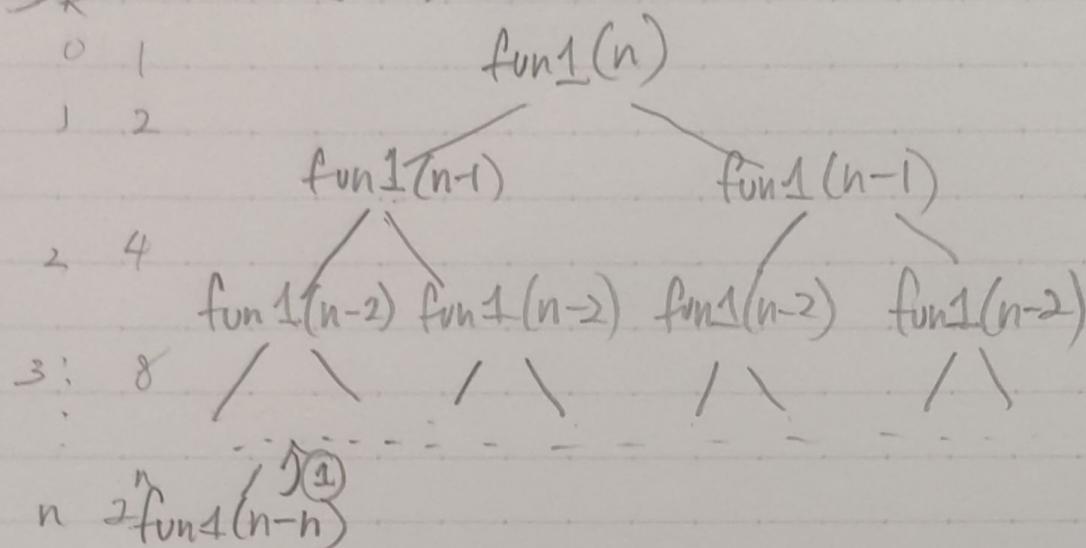 0 1 fun1(n)
1 2
fun1(n-1) fun1(n-1)
2 4
fun1(n-2) fun1(n-2) fun1(n-2) fun1(n-2)
3 : 8
①
n 2ⁿ fun1(n-n)